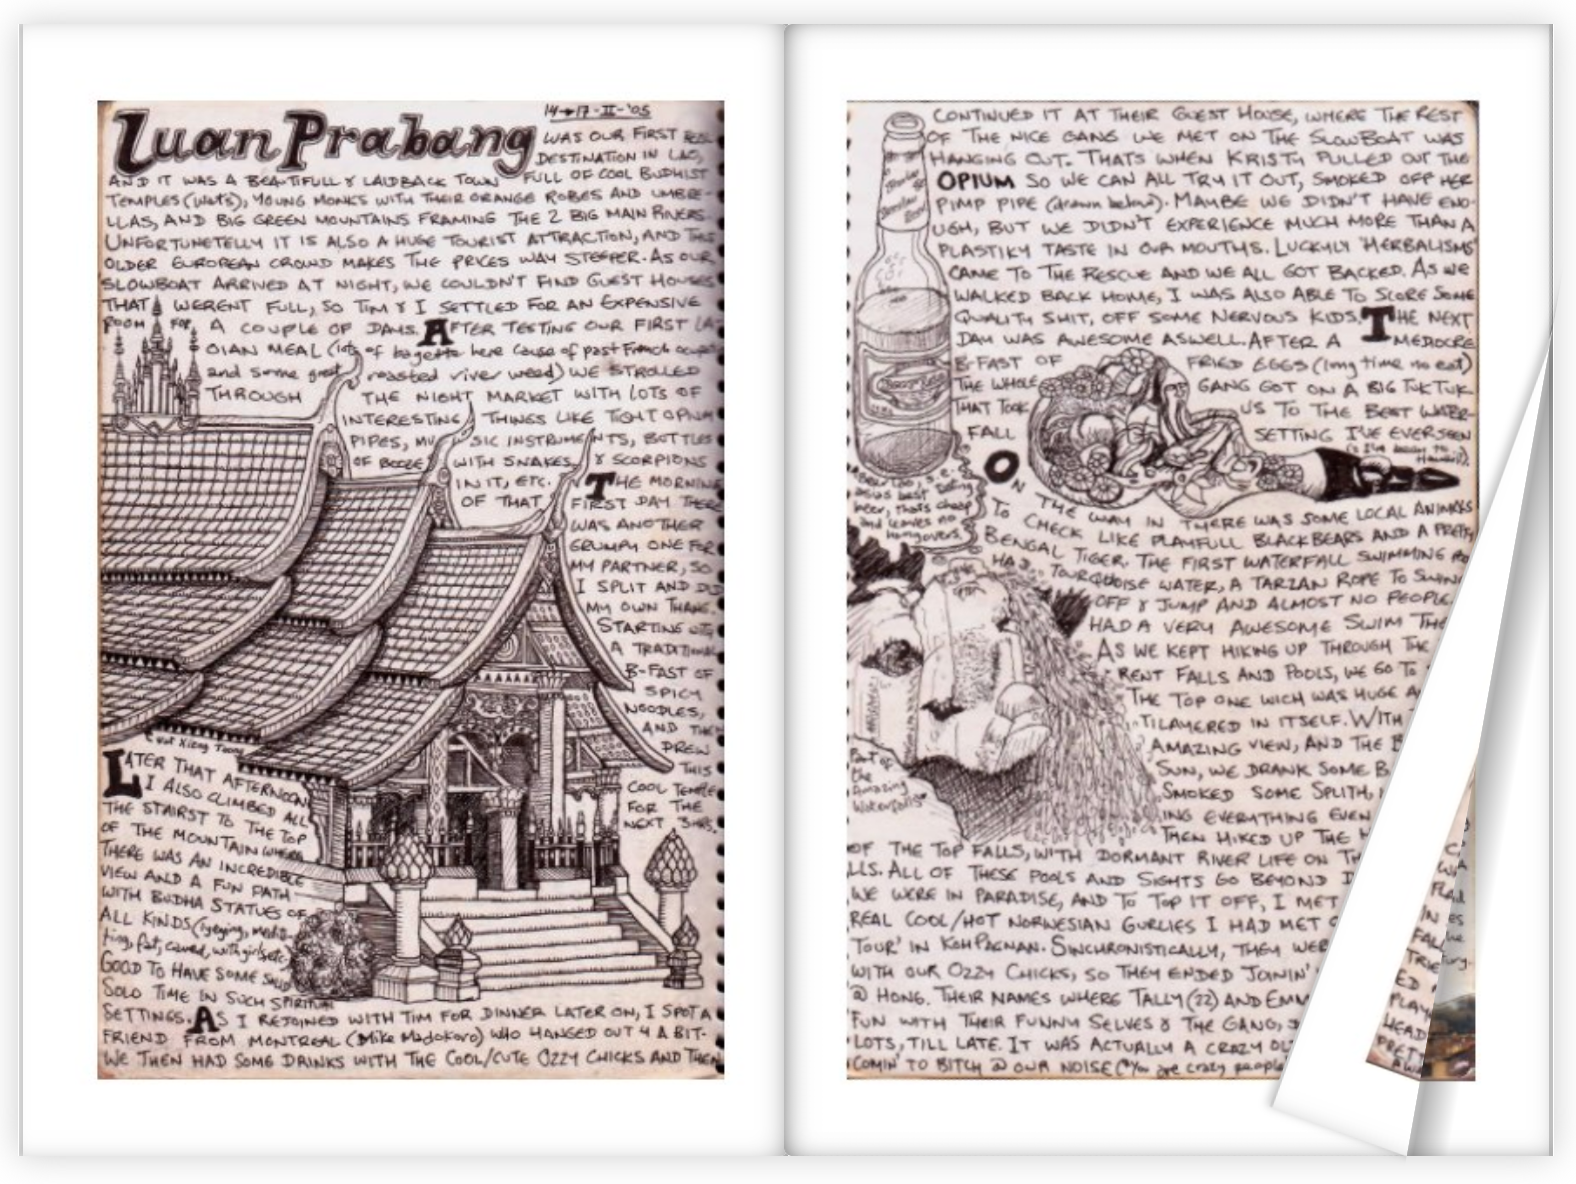 Luan Prabang
14→17-II-'05
WAS OUR FIRST REAL
DESTINATION IN LAO,
AND IT WAS A BEAUTIFULL & LAIDBACK TOWN FULL OF COOL BUDHIST
TEMPLES (Wats), YOUNG MONKS WITH THEIR ORANGE ROBES AND UMBRE-
LLAS, AND BIG GREEN MOUNTAINS FRAMING THE 2 BIG MAIN RIVERS.
UNFORTUNETELLY IT IS ALSO A HUGE TOURIST ATTRACTION, AND THIS
OLDER EUROPEAN CROWD MAKES THE PRICES WAY STEEPER. AS OUR
SLOWBOAT ARRIVED AT NIGHT, WE COULDN'T FIND GUEST HOUSES
THAT WERENT FULL, SO TIM & I SETTLED FOR AN EXPENSIVE
ROOM FOR A COUPLE OF DAYS. AFTER TESTING OUR FIRST LA-
OIAN MEAL (lots of bagette here cause of past French
and some great roasted river weed) WE STROLLED
THROUGH THE NIGHT MARKET WITH LOTS OF
INTERESTING THINGS LIKE TIGHT OPIUM
PIPES, MUSIC INSTRUMENTS, BOTTLES
OF BOOZE WITH SNAKES & SCORPIONS
IN IT, ETC. THE MORNING
OF THAT FIRST DAY THERE
WAS ANOTHER
GRUMPY ONE FOR
MY PARTNER, SO
I SPLIT AND DID
MY OWN THANG.
STARTING WITH
A TRADITIONAL
B-FAST OF
SPICY
NOODLES,
AND THEN
DREW
THIS
COOL TEMPLE
FOR THE
NEXT 3HRS.
Wat Xieng Toong
LATER THAT AFTERNOON
I ALSO CLIMBED ALL
THE STAIRST TO THE TOP
OF THE MOUNTAIN WHERE
THERE WAS AN INCREDIBLE
VIEW AND A FUN PATH
WITH BUDHA STATUES OF
ALL KINDS (lying, medita-
ting, fat, caved, with girls etc)
GOOD TO HAVE SOME SAID
SOLO TIME IN SUCH SPIRITUAL
SETTINGS. AS I REJOINED WITH TIM FOR DINNER LATER ON, I SPOT A
FRIEND FROM MONTREAL (Mike Madokoro) WHO HANGED OUT 4 A BIT.
WE THEN HAD SOME DRINKS WITH THE COOL/CUTE OZZY CHICKS AND THEN
CONTINUED IT AT THEIR GUEST HOUSE, WHERE THE REST
OF THE NICE GANG WE MET ON THE SLOWBOAT WAS
HANGING OUT. THATS WHEN KRISTY PULLED OUT THE
OPIUM SO WE CAN ALL TRY IT OUT, SMOKED OFF HER
PIMP PIPE (drawn below). MAYBE WE DIDN'T HAVE ENO-
UGH, BUT WE DIDN'T EXPERIENCE MUCH MORE THAN A
PLASTIKY TASTE IN OUR MOUTHS. LUCKYLY 'HERBALISMS'
CAME TO THE RESCUE AND WE ALL GOT BACKED. AS WE
WALKED BACK HOME, I WAS ALSO ABLE TO SCORE SOME
QUALITY SHIT, OFF SOME NERVOUS KIDS. THE NEXT
DAY WAS AWESOME ASWELL. AFTER A MEDIOCRE
B-FAST OF FRIED EGGS (long time no eat)
THE WHOLE GANG GOT ON A BIG TUKTUK
THAT TOOK US TO THE BEST WATER-
FALL SETTING I'VE EVER SEEN
(& I've been to Hawaii).
Beer Lao, s.e.
asias best tasting
beer, thats cheap
and leaves no
hangovers.
ON THE WAY IN THERE WAS SOME LOCAL ANIMALS
TO CHECK LIKE PLAYFULL BLACK BEARS AND A PRETTY
BENGAL TIGER. THE FIRST WATERFALL SWIMMING
HAD TOURQUOISE WATER, A TARZAN ROPE TO SWING
OFF & JUMP AND ALMOST NO PEOPLE.
HAD A VERY AWESOME SWIM THE
AS WE KEPT HIKING UP THROUGH THE
RENT FALLS AND POOLS, WE GO TO
THE TOP ONE WICH WAS HUGE A
TILAYERED IN ITSELF. WITH
AMAZING VIEW, AND THE B
SUN, WE DRANK SOME B
SMOKED SOME SPLITH,
ING EVERYTHING EVEN
THEN HIKED UP THE H
Part of
the
Amazing
Waterfalls
OF THE TOP FALLS, WITH DORMANT RIVER LIFE ON TH
LLS. ALL OF THESE POOLS AND SIGHTS GO BEYOND
WE WERE IN PARADISE, AND TO TOP IT OFF, I MET
REAL COOL/HOT NORWESIAN GURLIES I HAD MET
TOUR' IN KOH PAGNAN. SINCHRONISTICALLY, THEY WER
WITH OUR OZZY CHICKS, SO THEY ENDED JOININ'
@ HONG. THEIR NAMES WHERE TALLY (22) AND EMM
FUN WITH THEIR FUNNY SELVES & THE GANG,
LOTS, TILL LATE. IT WAS ACTUALLY A CRAZY OL
COMIN' TO BITCH @ OUR NOISE ("You are crazy people
FALL
TRIE
ED
PLAY
HEAD
PRETT